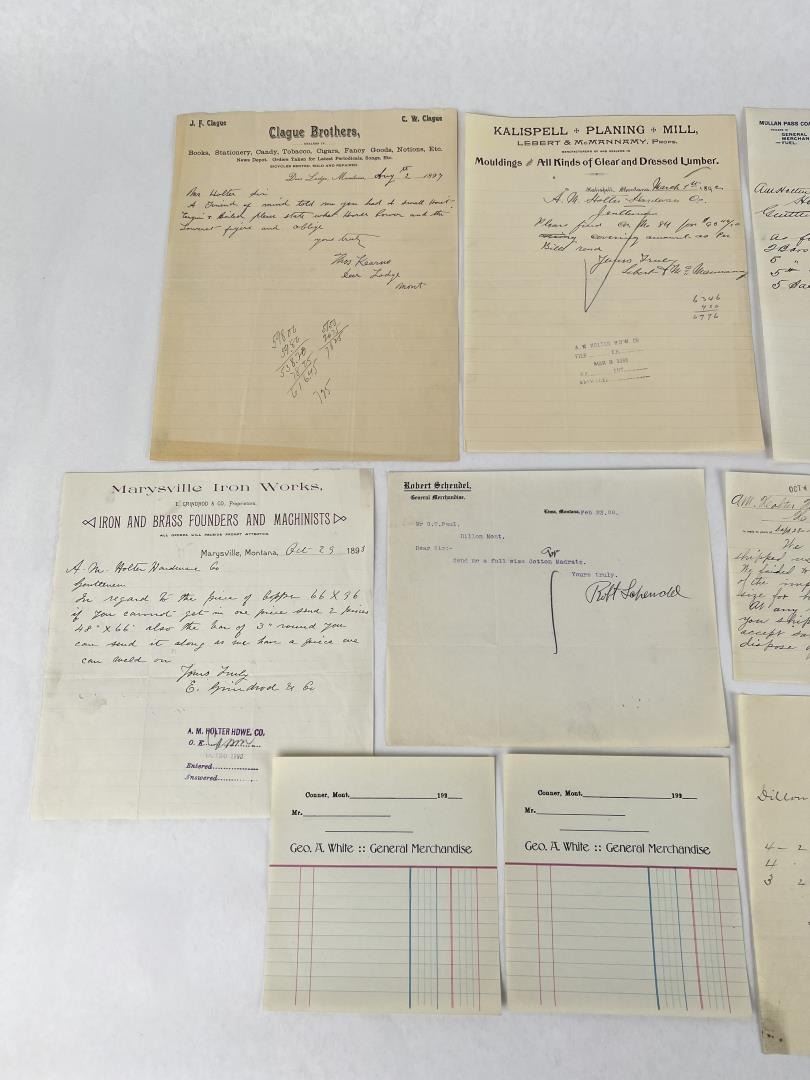 J. F. Clague C. W. Clague
Clague Brothers,
DEALERS IN
Books, Stationery, Candy, Tobacco, Cigars, Fancy Goods, Notions, Etc.
News Depot. Orders Taken for Latest Periodicals, Songs, Etc.
BICYCLES RENTED, SOLD AND REPAIRED.
Deer Lodge, Montana, Aug 2 1897
Mr Holter Sir
A Friend of mind told me you had a small
Engin & Boiler, please state what Horse Power and the
Lowest figure and oblige
yours truly
Thos Kearns
Deer Lodge
Mont
KALISPELL + PLANING + MILL,
LEBERT & McMANNAMY, PROPS.
MANUFACTURERS OF AND DEALERS IN
Mouldings and All Kinds of Clear and Dressed Lumber.
Kalispell, Montana, March 189
A. M. Holter Hardware Co.
Gentlemen
Please find ck No 84 for
covering amount as Per
Bill
Yours Truly
Lebert & McMannamy
6346
430
6776
A. M. HOLTER HDW. CO
MULLAN PASS COA
DEALERS IN
GENERAL
MERCHAN
FUEL.
A M Holter
as f
2 Bars
5 "
5 "
5
Marysville Iron Works,
E. GRINDROD & CO., Proprietors.
IRON AND BRASS FOUNDERS AND MACHINISTS
ALL ORDERS WILL RECEIVE PROMPT ATTENTION.
Marysville, Montana, Oct 29 1893
A. M. Holter Hardware Co
Gentlemen
In regard to the piece of Copper 66 X 96
if you cannot get in one piece send 2 pieces
48" X 66" also the bar of 3" round you
can send it along as we have a piece we
can weld on
Yours Truly
E. Grindrod & Co
A. M. HOLTER HDWE. CO.
O. K.
Entered
Answered
Robert Schendel,
General Merchandise.
Lima, Montana, Feb 23.08.
Mr O.T.Paul,
Dillon Mont.
Dear Sir:-
Send me a full size Cotton Madrats.
Yours truly.
Robt Schendel
OCT 4
A.M. Holter
We
shipped us
of the
size for
At any
you ship
accept
dispose
Conner, Mont. 193
Mr.
Geo. A. White :: General Merchandise
Conner, Mont. 193
Mr.
Geo. A. White :: General Merchandise
Dillon
4 - 2
4
3 2